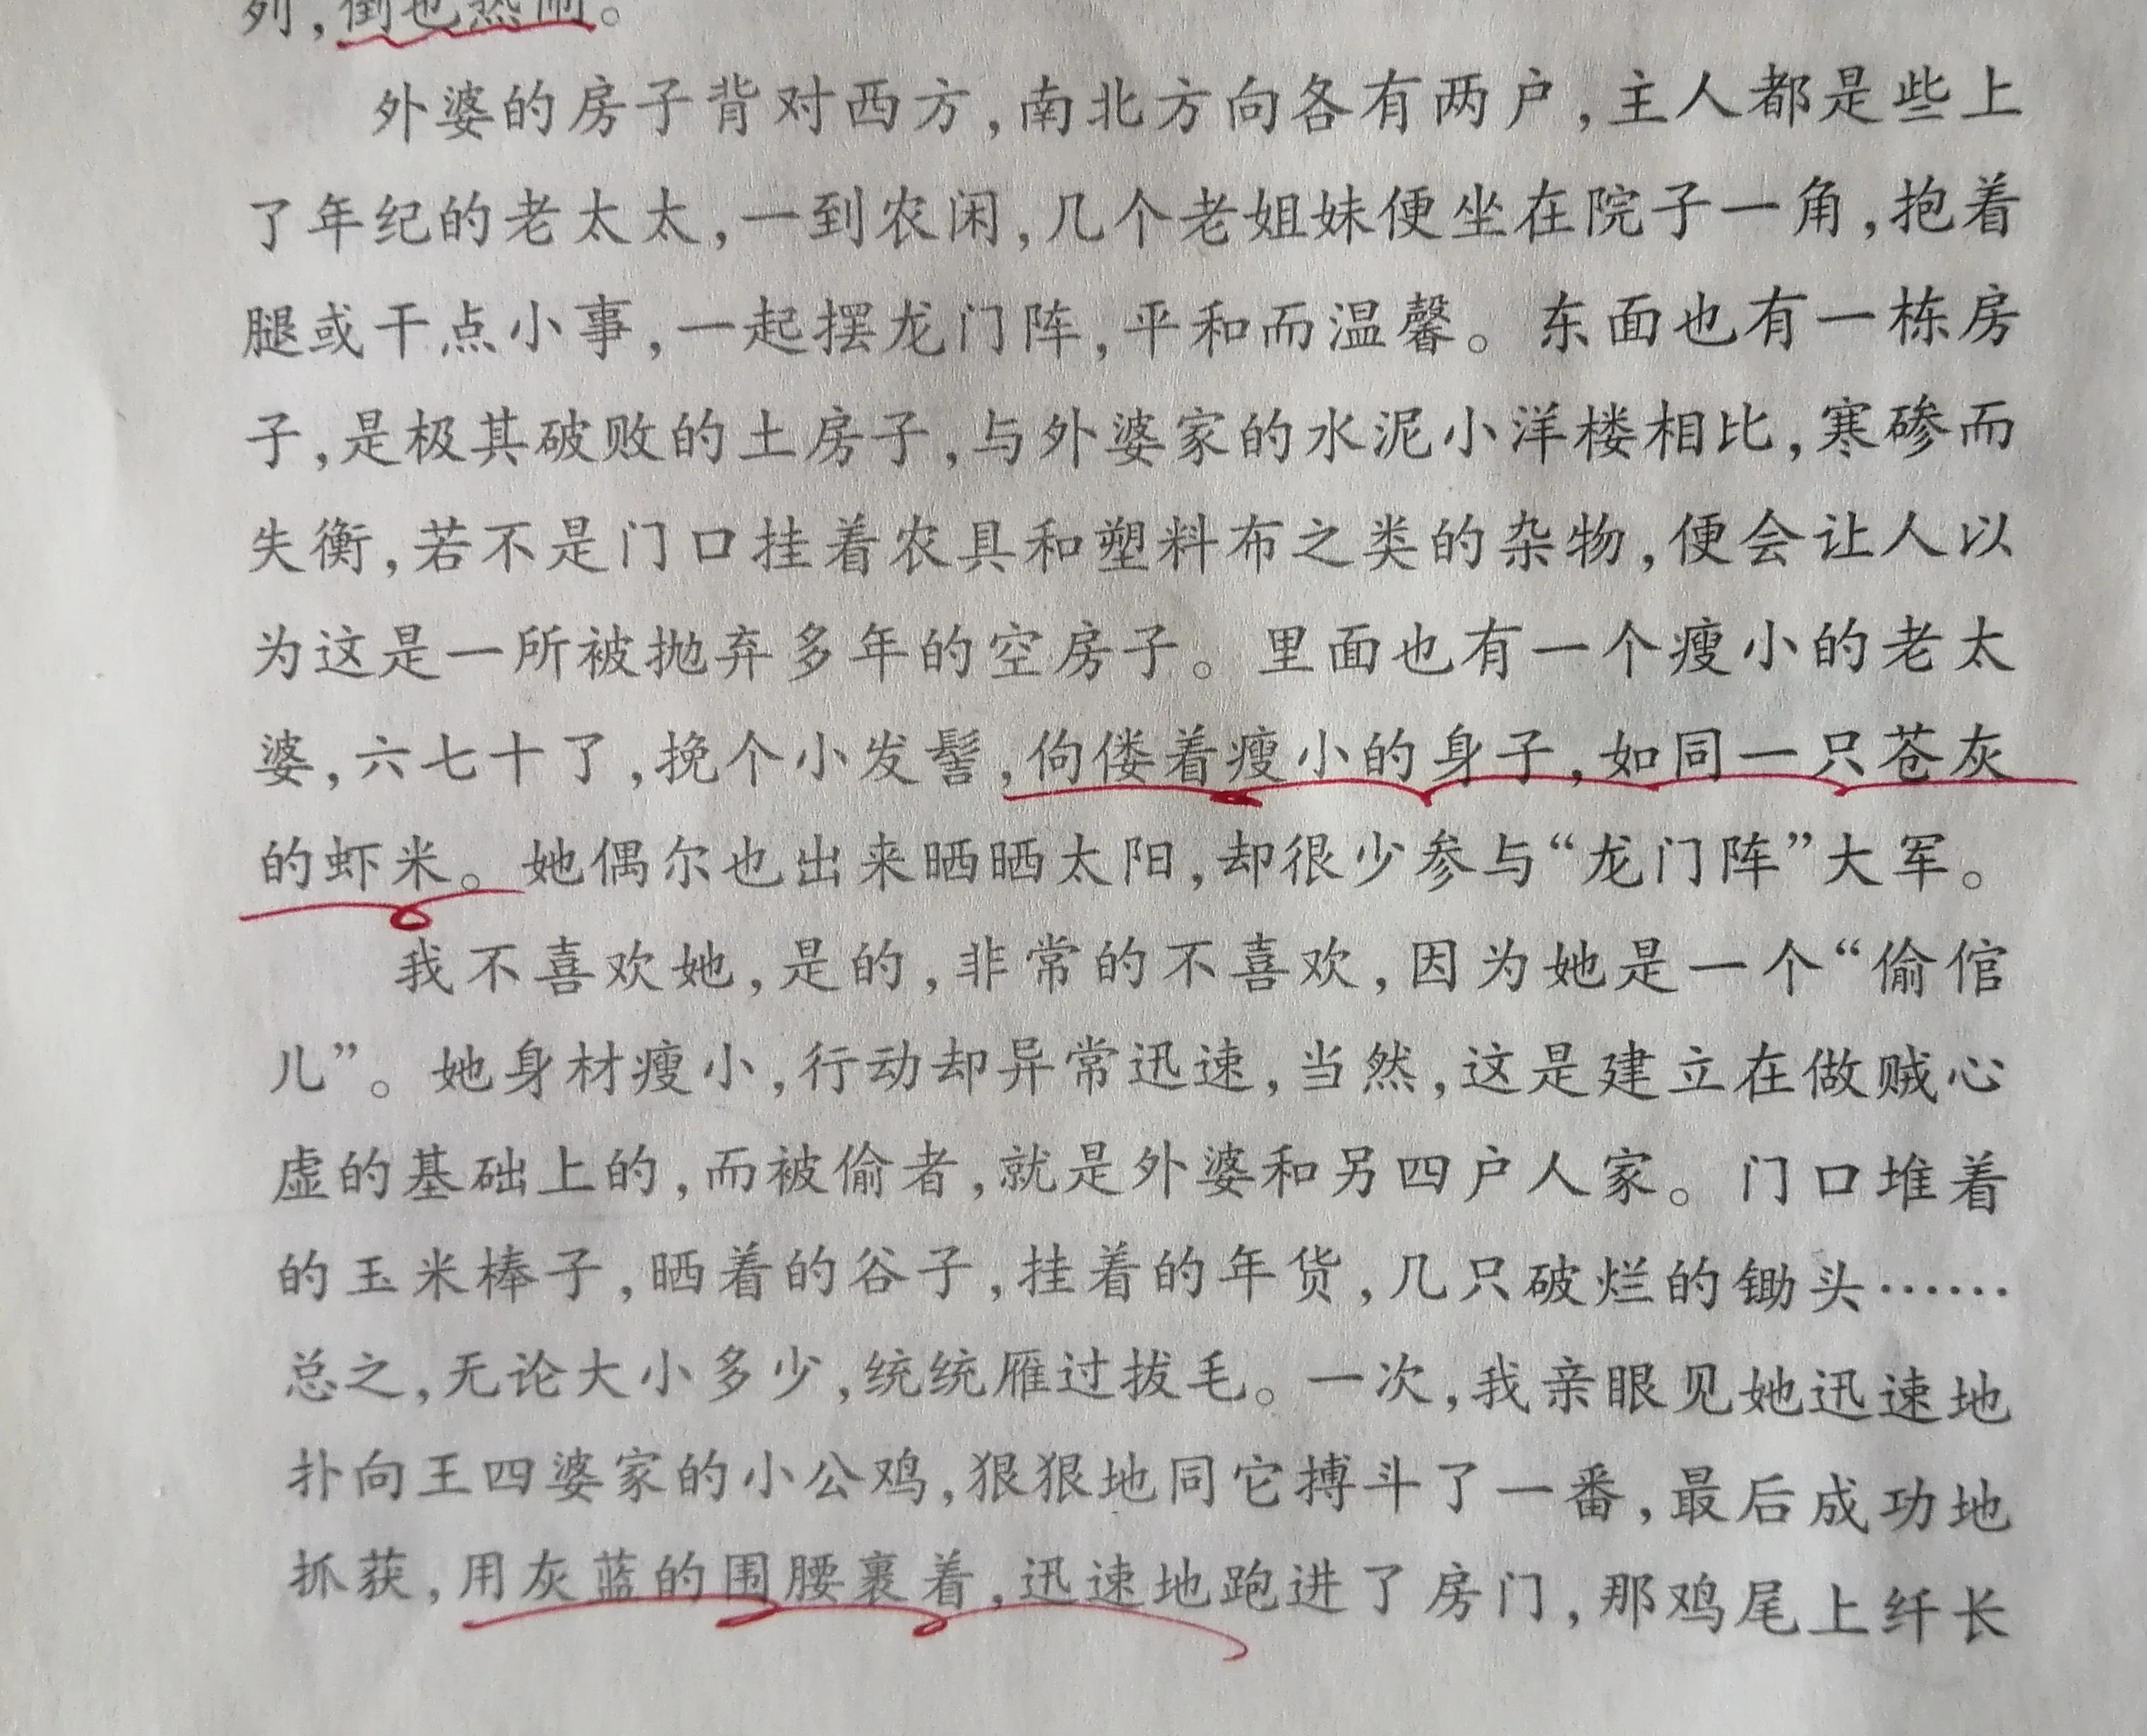 列,倒也热闹。
外婆的房子背对西方,南北方向各有两户,主人都是些上
了年纪的老太太,一到农闲,几个老姐妹便坐在院子一角,抱着
腿或干点小事,一起摆龙门阵,平和而温馨。东面也有一栋房
子,是极其破败的土房子,与外婆家的水泥小洋楼相比,寒碜而
失衡,若不是门口挂着农具和塑料布之类的杂物,便会让人以
为这是一所被抛弃多年的空房子。里面也有一个瘦小的老太
婆,六七十了,挽个小发髻,佝偻着瘦小的身子,如同一只苍灰
的虾米。她偶尔也出来晒晒太阳,却很少参与“龙门阵”大军。
我不喜欢她,是的,非常的不喜欢,因为她是一个“偷倌
儿”。她身材瘦小,行动却异常迅速,当然,这是建立在做贼心
虚的基础上的,而被偷者,就是外婆和另四户人家。门口堆着
的玉米棒子,晒着的谷子,挂着的年货,几只破烂的锄头……
总之,无论大小多少,统统雁过拔毛。一次,我亲眼见她迅速地
扑向王四婆家的小公鸡,狠狠地同它搏斗了一番,最后成功地
抓获,用灰蓝的围腰裹着,迅速地跑进了房门,那鸡尾上纤长